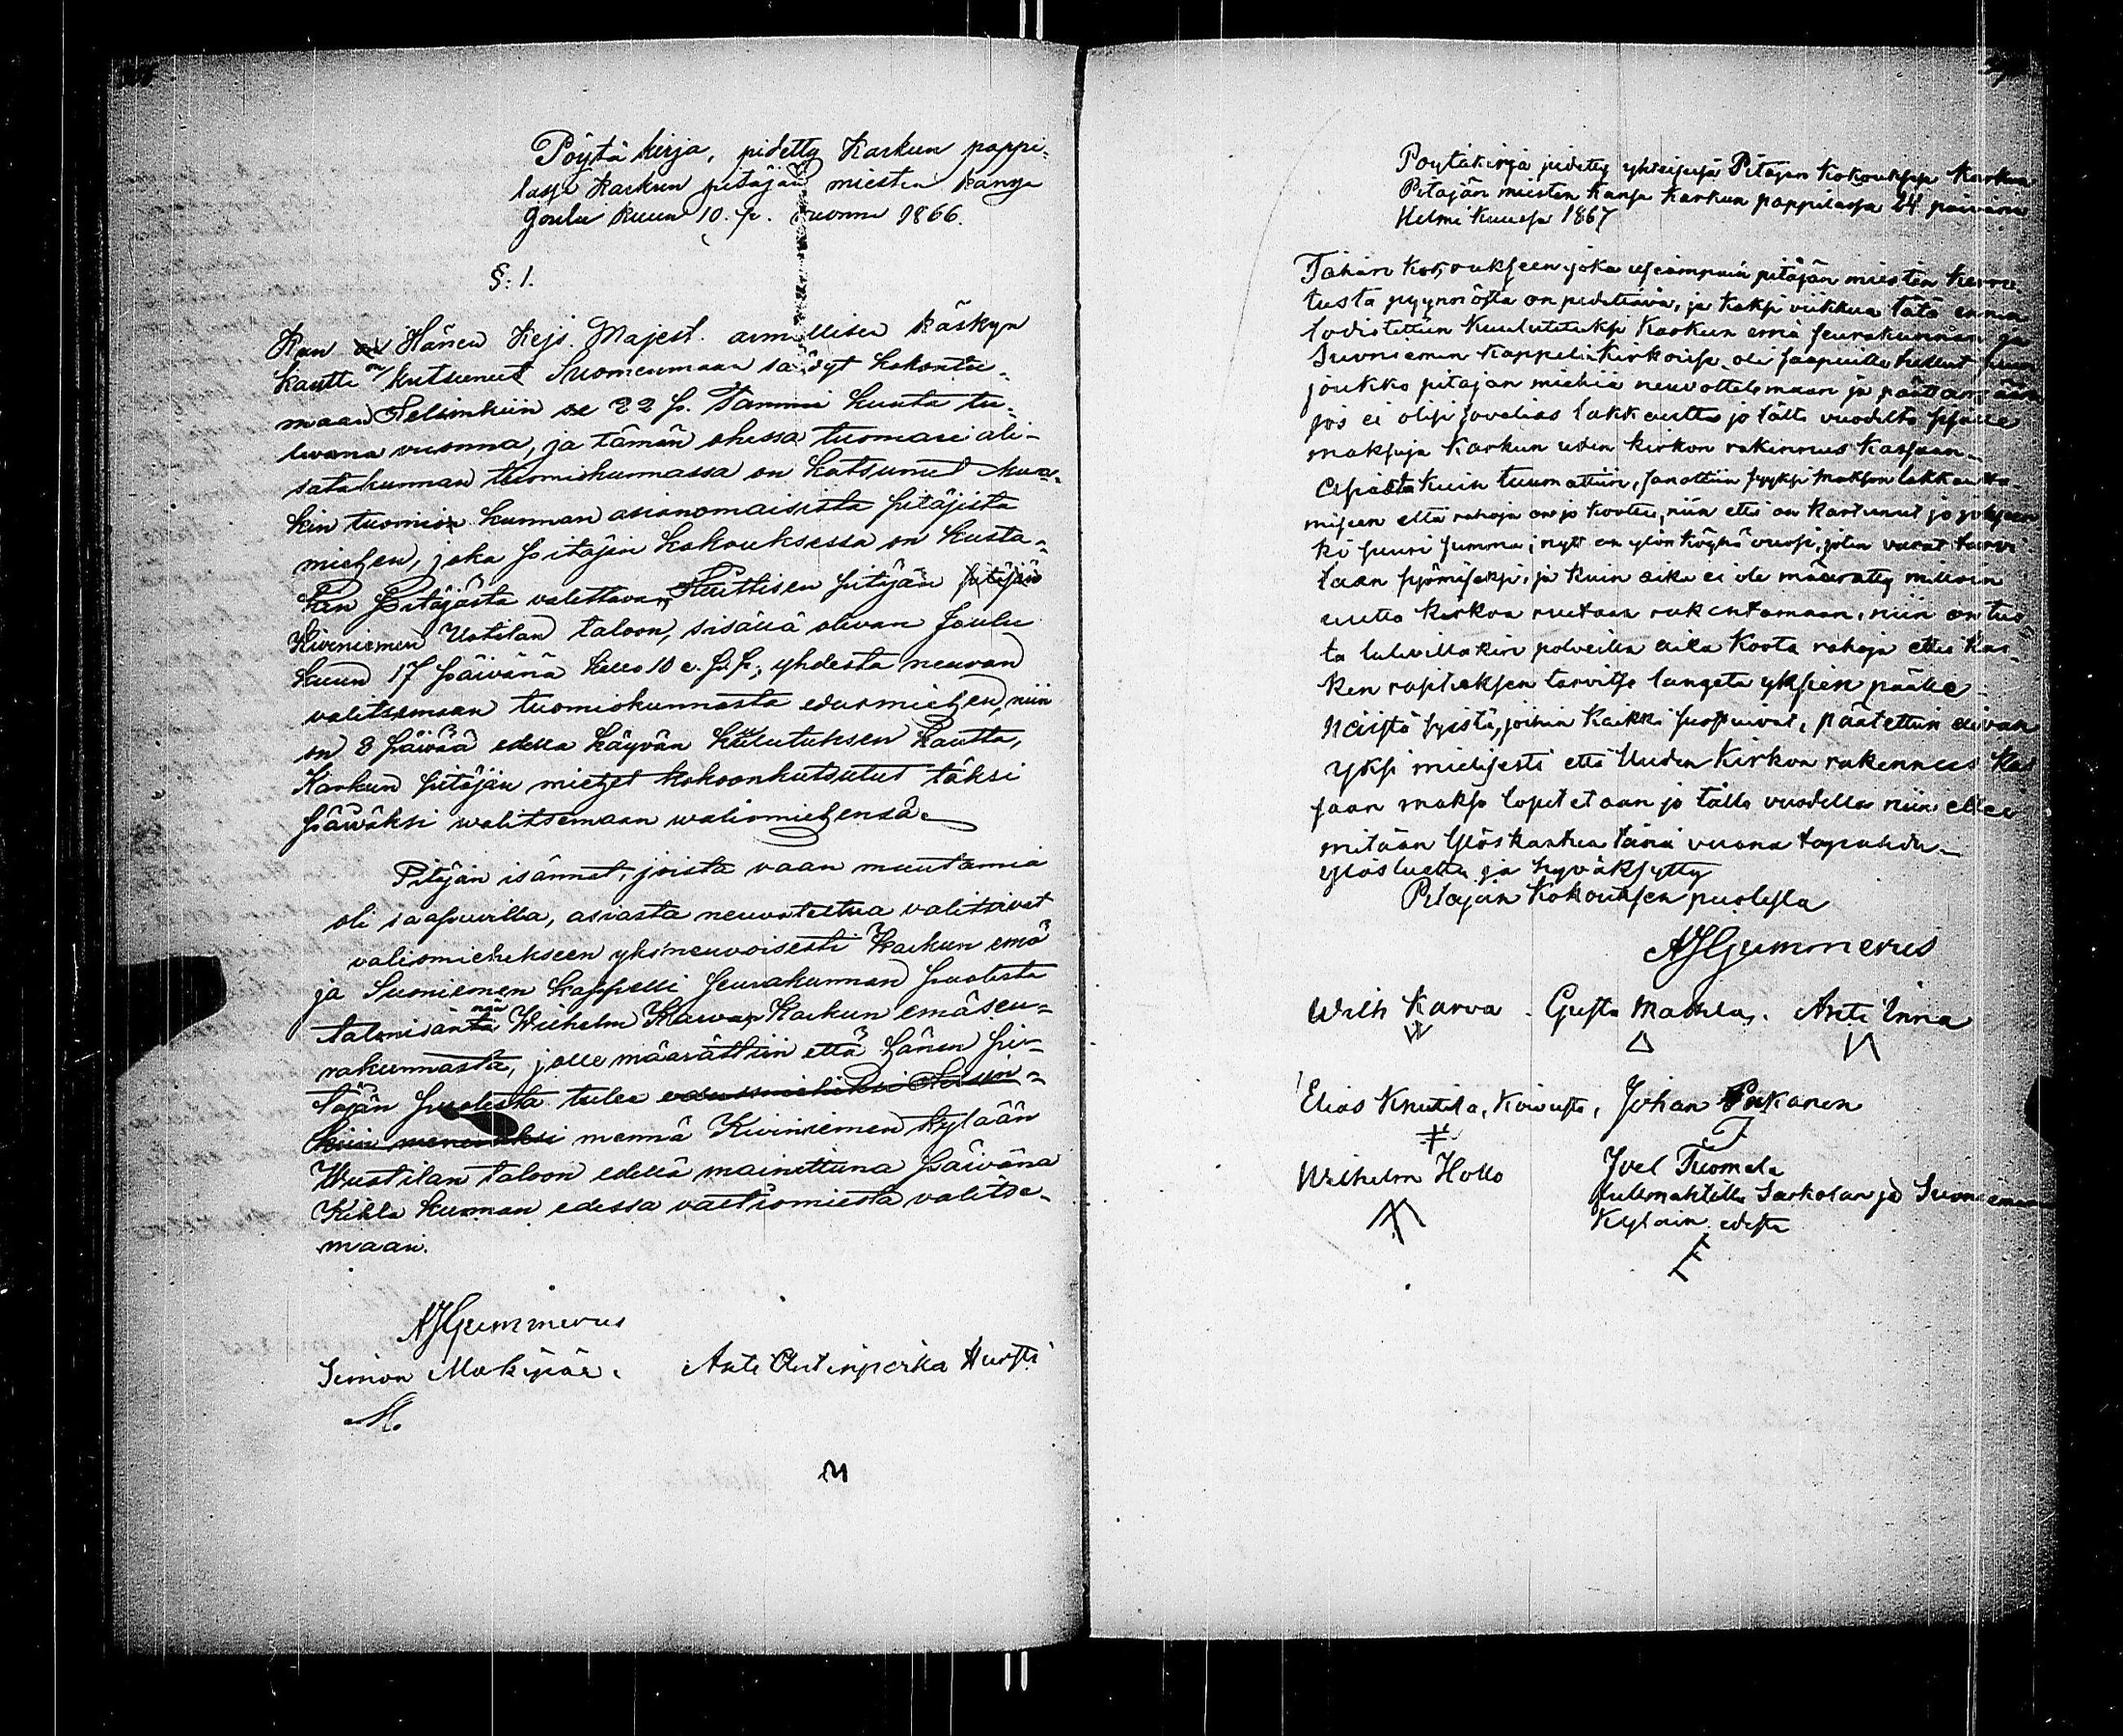 Pöytä kirja, pidetty Karkun pappi-
lassa Karkun pitäjän miesten kansa
Joulu kuun 10. p. vuonna 1866.
§. 1.
Kun Hänen Kejs. Majest. armollisen käskyn
kautta on kutsunut Suomenmaan säädyt kokontu-
maan Helsinkiin se 22 p. Tammi kuuta tu-
levana vuonna, ja tämän ohessa tuomari ali-
satakunnan tuomiokunnassa on kutsunut
kin tuomio kunnan asianomaisista pitäjistä
miehen, joka pitäjän kokouksessa on kusta-
kin Pitäjästä valittava, Huittisen pitäjän pitäjän
Kiviniemen Uotilan taloon, sisällä olevan Joulu
kuun 17 päivänä kello 10 e. p. p., yhdestä neuvon
valitsemaan tuomiokunnasta edusmiehen, niin
on 8 päivää edellä käyvän kuulutuksen kautta,
Karkun pitäjän miehet kokoonkutsutut täksi
päiwäksi walitsemaan waliomiehensä.
Pitäjän isännät, joista vaan muutamia
oli saapuvilla, asiasta neuvoteltua valitsivat
valiomiehekseen yksineuvoisesti Karkun emä
ja Suoniemen kappelli seurakunnan puolesta
talonisäntä nän Wilhelm Karvan Karkun emäseu-
rakunnasta, jolle määrättiin että hänen pi-
täjän puolesta tulee edusmieheksi Helsin-
kiin menneeksi mennä Kiviniemen kylään
Wuotilan taloon edellä mainittuna päivänä
Kihla kunnan edessä valtiomiestä valitse-
maan.
AJGummerus
Simon Mäkipää. Anti Antinperka Hursti
M.
Pöytäkirja pidetty yhteisessä Pitäjän Kokouksessa Karkun
Pitäjän miesten kansa Karkun pappilassa 24 päivänä
Helmi Kuussa 1867
Tähän kokoukseen joka useampain pitäjän miesten
tusta pyynnöstä on pidettävä, ja kaksi viikkua tätä ennen
todistettiin kuulutetuksi Karkun emä seurakunnan ja
Suoniemen Kappelin kirkoissa oli saapuilla tullut suuri
joukko pitäjän miehiä neuvottelemaan ja päättämään
jos ei olisi sovelias lakkautta jo tältä vuodelta
maksuja Karkun uden kirkon rakennus Kassaan
Asiasta kuin tuumattiin, sanottiin syyksi makson lakkautta
miseen että rahoja on jo koottu, niin että on karttunut jo johon
ki suuri summa; nytt on ylön köyhä vuosi, jolon varat tarvi
taan syömiseksi, ja kuin aika ei ole määrätty milloin
uutta kirkoa ruetaan rakentamaan, niin on tuo
ta tulevillakin polveilla aika koota rahoja ettei kai-
ken rasituksen tarvitse langeta yksien päälle.
Näistä syistä, joihin kaikki suostuivat, päätettiin aivan
yksi mielisesti että Uuden Kirkon rakennus kas
saan makso lopetetaan jo tällä vuodella niin ettei
mitään Ylöskantua tänä vuona tapahdu
ylösluettu ja hyväksytty
Pitäjän Kokouksen puolesta
AJGummerus
Wilh Karva. Gusta Mattila. Anti Inna
Elias Knutila, Koivusta, Johan Pukanen
Wilhelm Hollo Joel Tuomela
fullmahtilla Sarkolan ja Suoniemen
Kyläin edestä